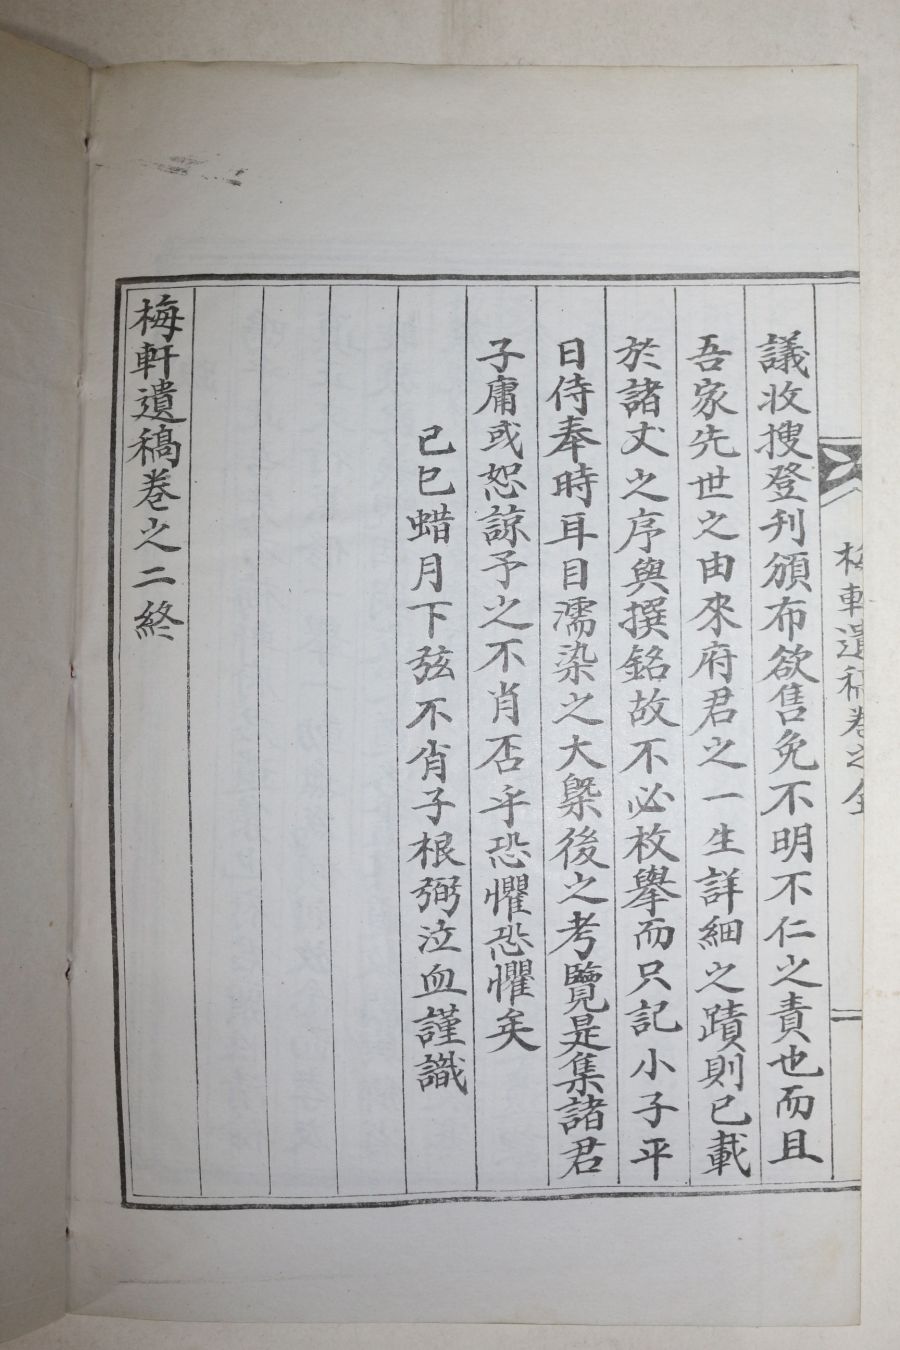 梅軒遺稿卷之全
議收搜登刊頒布欲售免不明不仁之責也而且
吾家先世之由來府君之一生詳細之蹟則已載
於諸丈之序與撰銘故不必枚擧而只記小子平
日侍奉時耳目濡染之大槩後之考覽是集諸君
子庸或恕諒予之不肖否乎恐懼恐懼矣
己巳蜡月下弦不肖子根弼泣血謹識
梅軒遺稿卷之二終